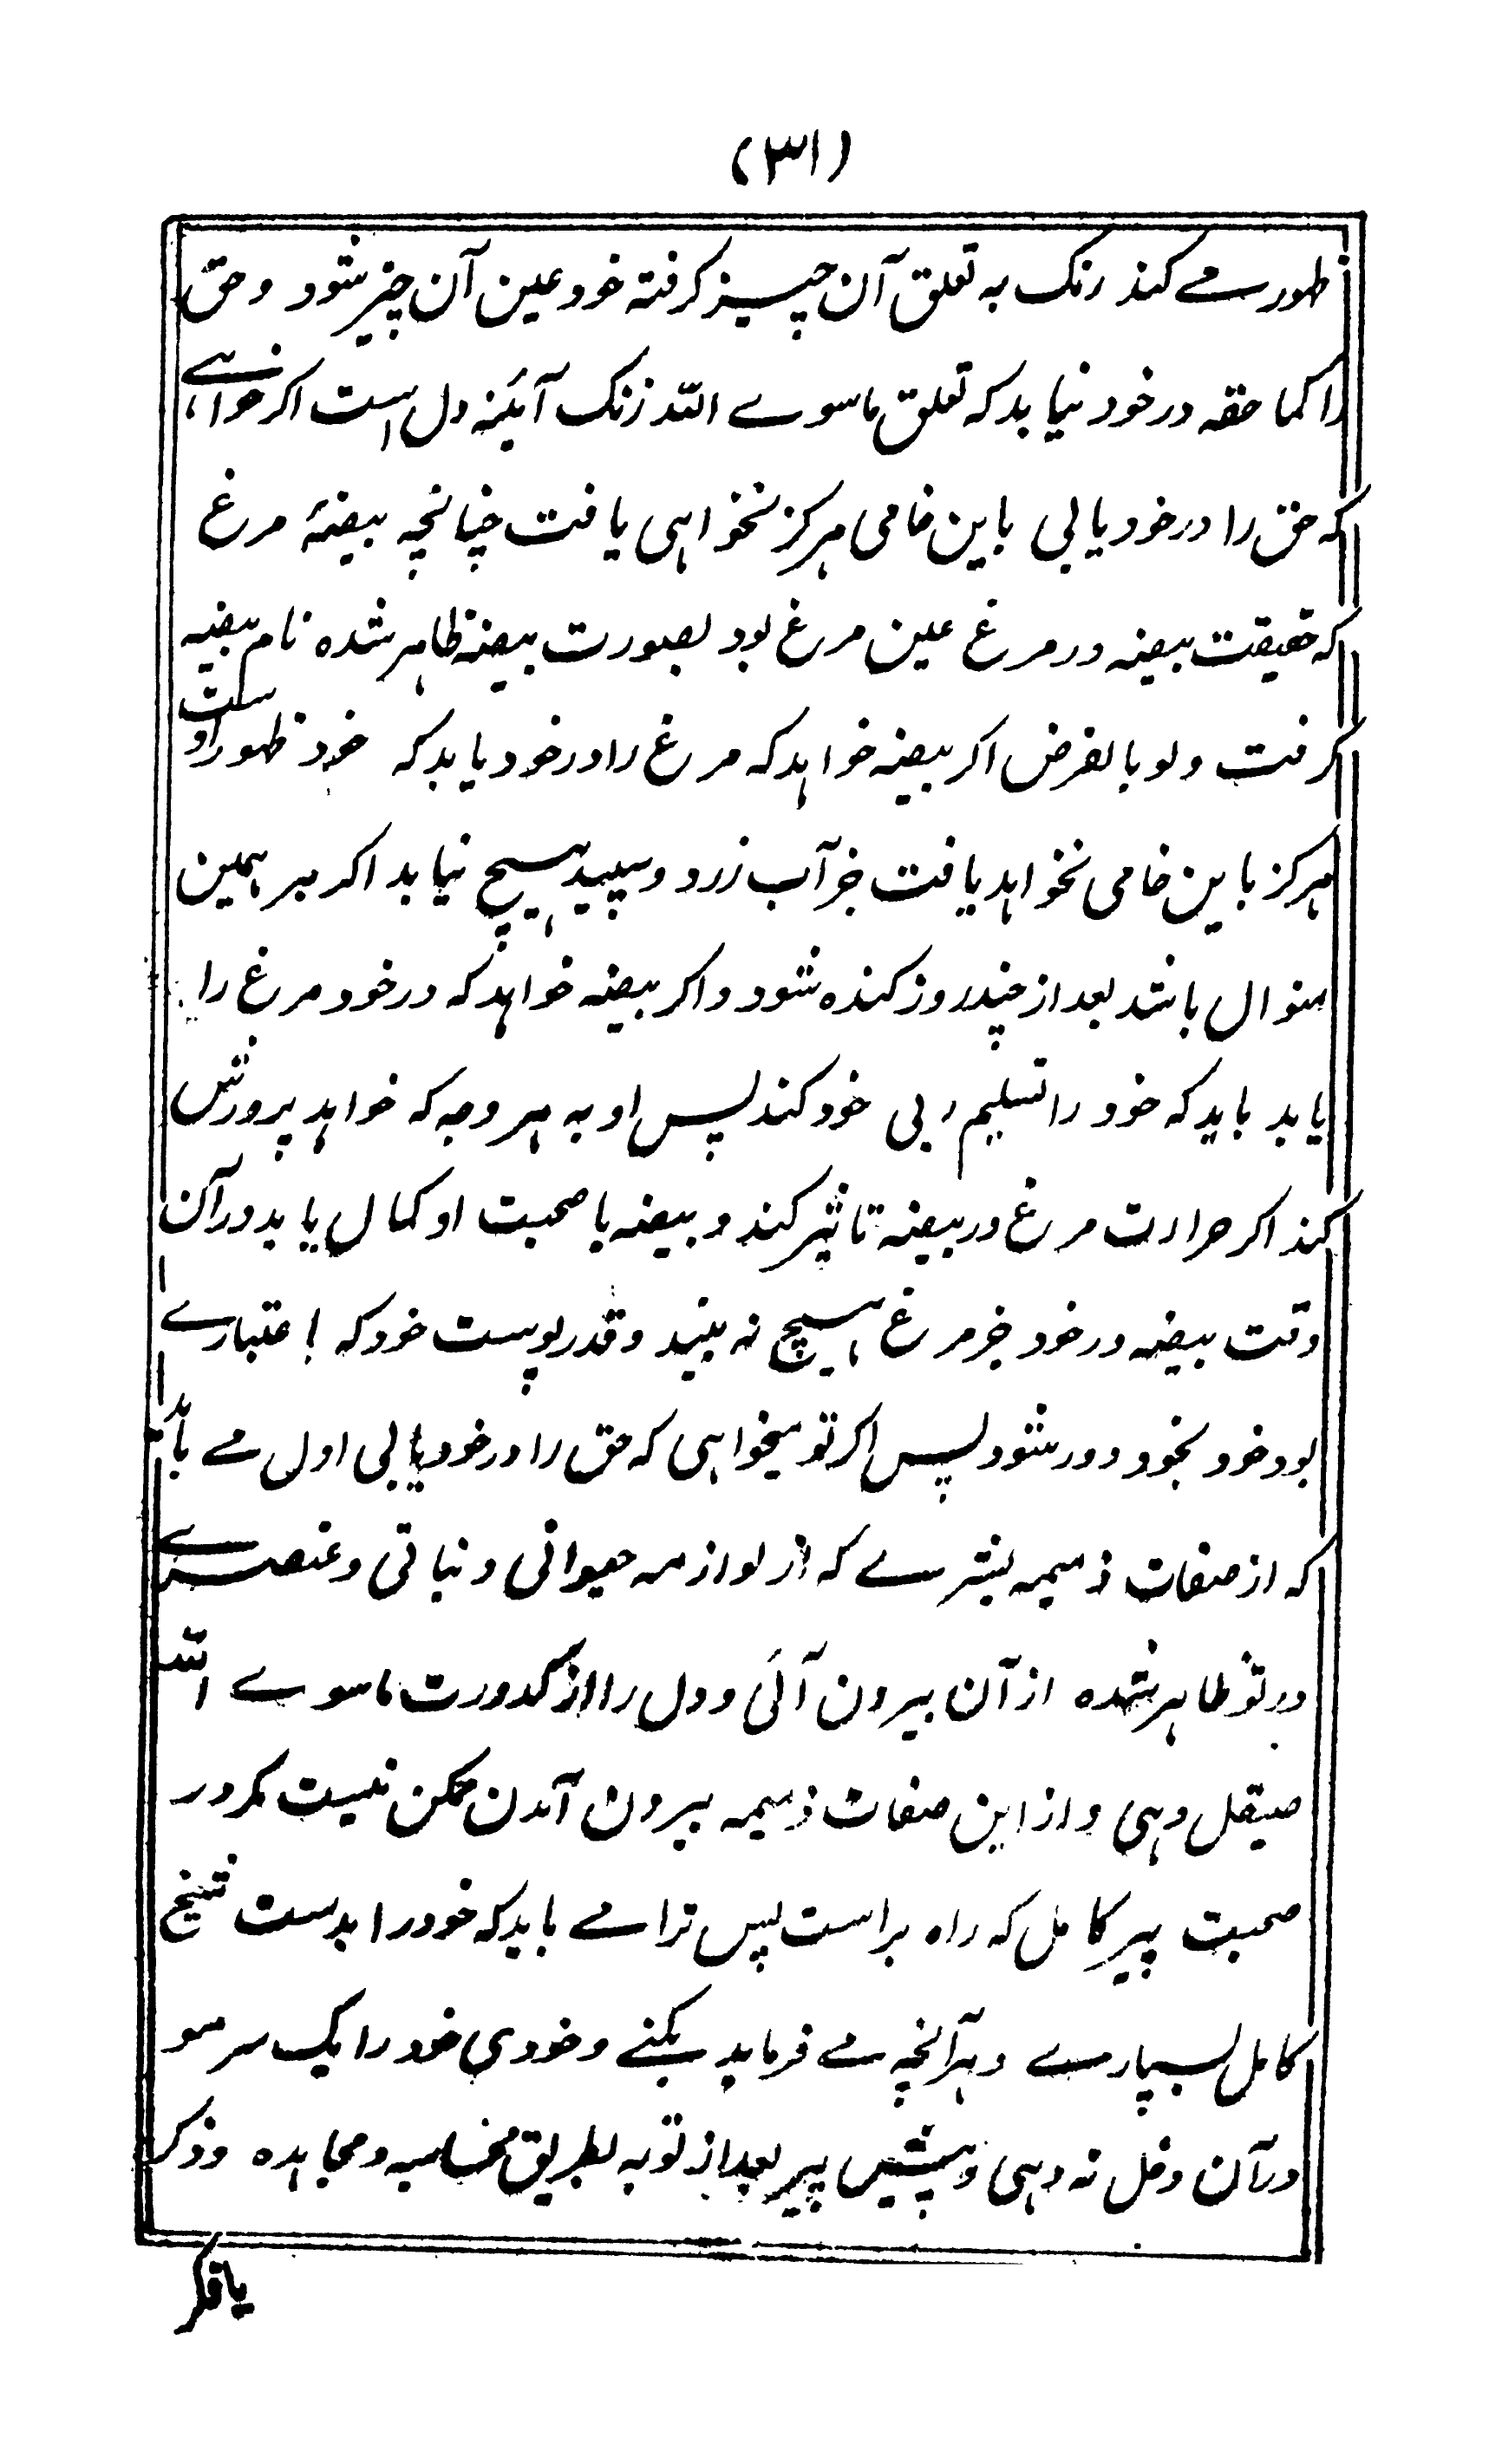 (۳۱)
ظهور مے کند رنک به تعلق آن چیز کرفته خود عین آن چیز شود و حق
را کما حقه در خود نیابد که تعلق ماسوے الله زنک آئینه دل است اکر خواہے
که حق را در خود یابی باین خامی هرکز نخواهی یافت چنانچه بیضۀ مرغ
که حقیقت بیضه در مرغ عین مرغ بود بصورت بیضه ظاهر شده نام بیضه
کرفت ولو بالفرض اکر بیضه خواهد که مرغ را در خود یابد که خود ظهور اوست
هرکز باین خامی نخواهد یافت جز آب زرد و سپید هیچ نیابد اکر بر همین
منوال باشد بعد از چند روز کنده شود و اکر بیضه خواهد که در خود مرغ را
یابد باید که خود را تسلیم ربی خود کند پس او به هر وجه که خواهد پرورش
کند اکر حرارت مرغ در بیضه تاثیر کند و بیضه با صحبت او کمال یابد در آن
وقت بیضه در خود جز مرغ هیچ نه بیند و قدر پوست خود که اعتبارے
بود خود بخود دور شود پس اکر تو میخواهی که حق را در خود یابی اول مے باید
که از صفات ذمیمه بشرے که از لوازمه حیوانی و نباتی و عنصرے
در تو ظاهر شده از آن بیرون آئی و دل را از کدورت ماسوے الله
صیقل دهی و از این صفات ذمیمه بیرون آمدن ممکن نیست مکر در
صحبت پیر کامل که راه براست پس ترا مے باید که خود را بدست شیخ
کامل بسپارے و هر آنچه مے فرماید بکنے و خودی خود را یک سر مو
در آن دخل نه دهی و پیش پیر بعد از توبه بطریق محاسبه و مجاهده و ذکر
یا فکر